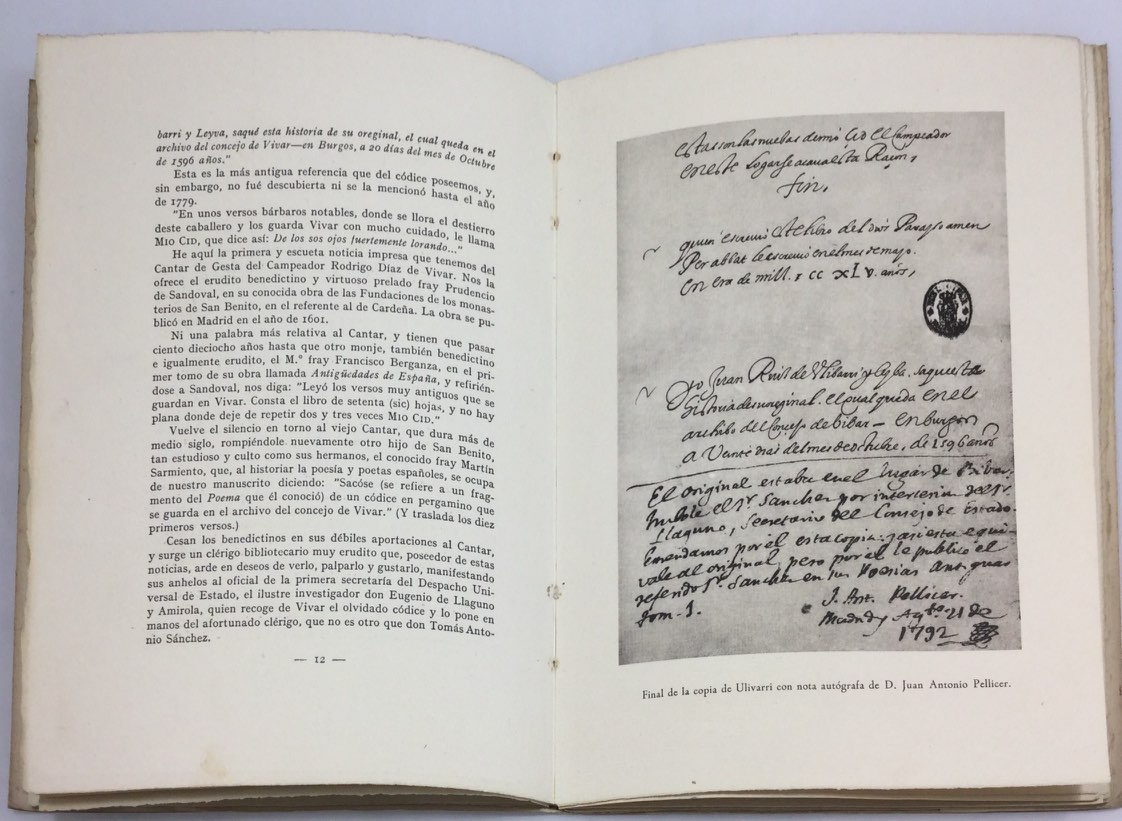 barri y Leyva, saqué esta historia de su oreginal, el cual queda en el
archivo del concejo de Vivar—en Burgos, a 20 días del mes de Octubre
de 1596 años."
Esta es la más antigua referencia que del códice poseemos, y,
sin embargo, no fué descubierta ni se la mencionó hasta el año
de 1779.
"En unos versos bárbaros notables, donde se llora el destierro
deste caballero y los guarda Vivar con mucho cuidado, le llama
MIO CID, que dice así: De los sos ojos fuertemente lorando..."
He aquí la primera y escueta noticia impresa que tenemos del
Cantar de Gesta del Campeador Rodrigo Díaz de Vivar. Nos la
ofrece el erudito benedictino y virtuoso prelado fray Prudencio
de Sandoval, en su conocida obra de las Fundaciones de los monas-
terios de San Benito, en el referente al de Cardeña. La obra se pu-
blicó en Madrid en el año de 1601.
Ni una palabra más relativa al Cantar, y tienen que pasar
ciento dieciocho años hasta que otro monje, también benedictino
e igualmente erudito, el M.º fray Francisco Berganza, en el pri-
mer tomo de su obra llamada Antigüedades de España, y refirién-
dose a Sandoval, nos diga: "Leyó los versos muy antiguos que se
guardan en Vivar. Consta el libro de setenta (sic) hojas, y no hay
plana donde deje de repetir dos y tres veces MIO CID."
Vuelve el silencio en torno al viejo Cantar, que dura más de
medio siglo, rompiéndole nuevamente otro hijo de San Benito,
tan estudioso y culto como sus hermanos, el conocido fray Martín
Sarmiento, que, al historiar la poesía y poetas españoles, se ocupa
de nuestro manuscrito diciendo: "Sacóse (se refiere a un frag-
mento del Poema que él conoció) de un códice en pergamino que
se guarda en el archivo del concejo de Vivar." (Y traslada los diez
primeros versos.)
Cesan los benedictinos en sus débiles aportaciones al Cantar,
y surge un clérigo bibliotecario muy erudito que, poseedor de estas
noticias, arde en deseos de verlo, palparlo y gustarlo, manifestando
sus anhelos al oficial de la primera secretaría del Despacho Uni-
versal de Estado, el ilustre investigador don Eugenio de Llaguno
y Amirola, quien recoge de Vivar el olvidado códice y lo pone en
manos del afortunado clérigo, que no es otro que don Tomás Anto-
nio Sánchez.
— 12 —
estas son las nuebas de mio Cid el Campeador
en este logar se acaua esta Raçon,
fin,
quien escreuio este libro del dios Parayso amen
Per abbat le escreuio en el mes de mayo.
en era de mill. i CC xLv. años,
yo Juan Ruiz de Vlibarri y leyba. saque esta
historia de su original. el qual queda en el
archibo del Concejo de bibar — en burgos
a Veinte dias del mes de octubre, de 1596 años
El original estaba en el Lugar de Bibar,
hubole el Sr. Sanchez por intercesion del Sr.
Llaguno, Secretario del Consejo de Estado.
Emendamos por él esta copia: y asi esta equi-
vale al original, pero por él le publicó el
referido Sr. Sanchez en sus Poesias Antiguas
tom. 1.
J. Ant. Pellicer.
Madrid y Agto. 21 de
1792
Final de la copia de Ulivarri con nota autógrafa de D. Juan Antonio Pellicer.